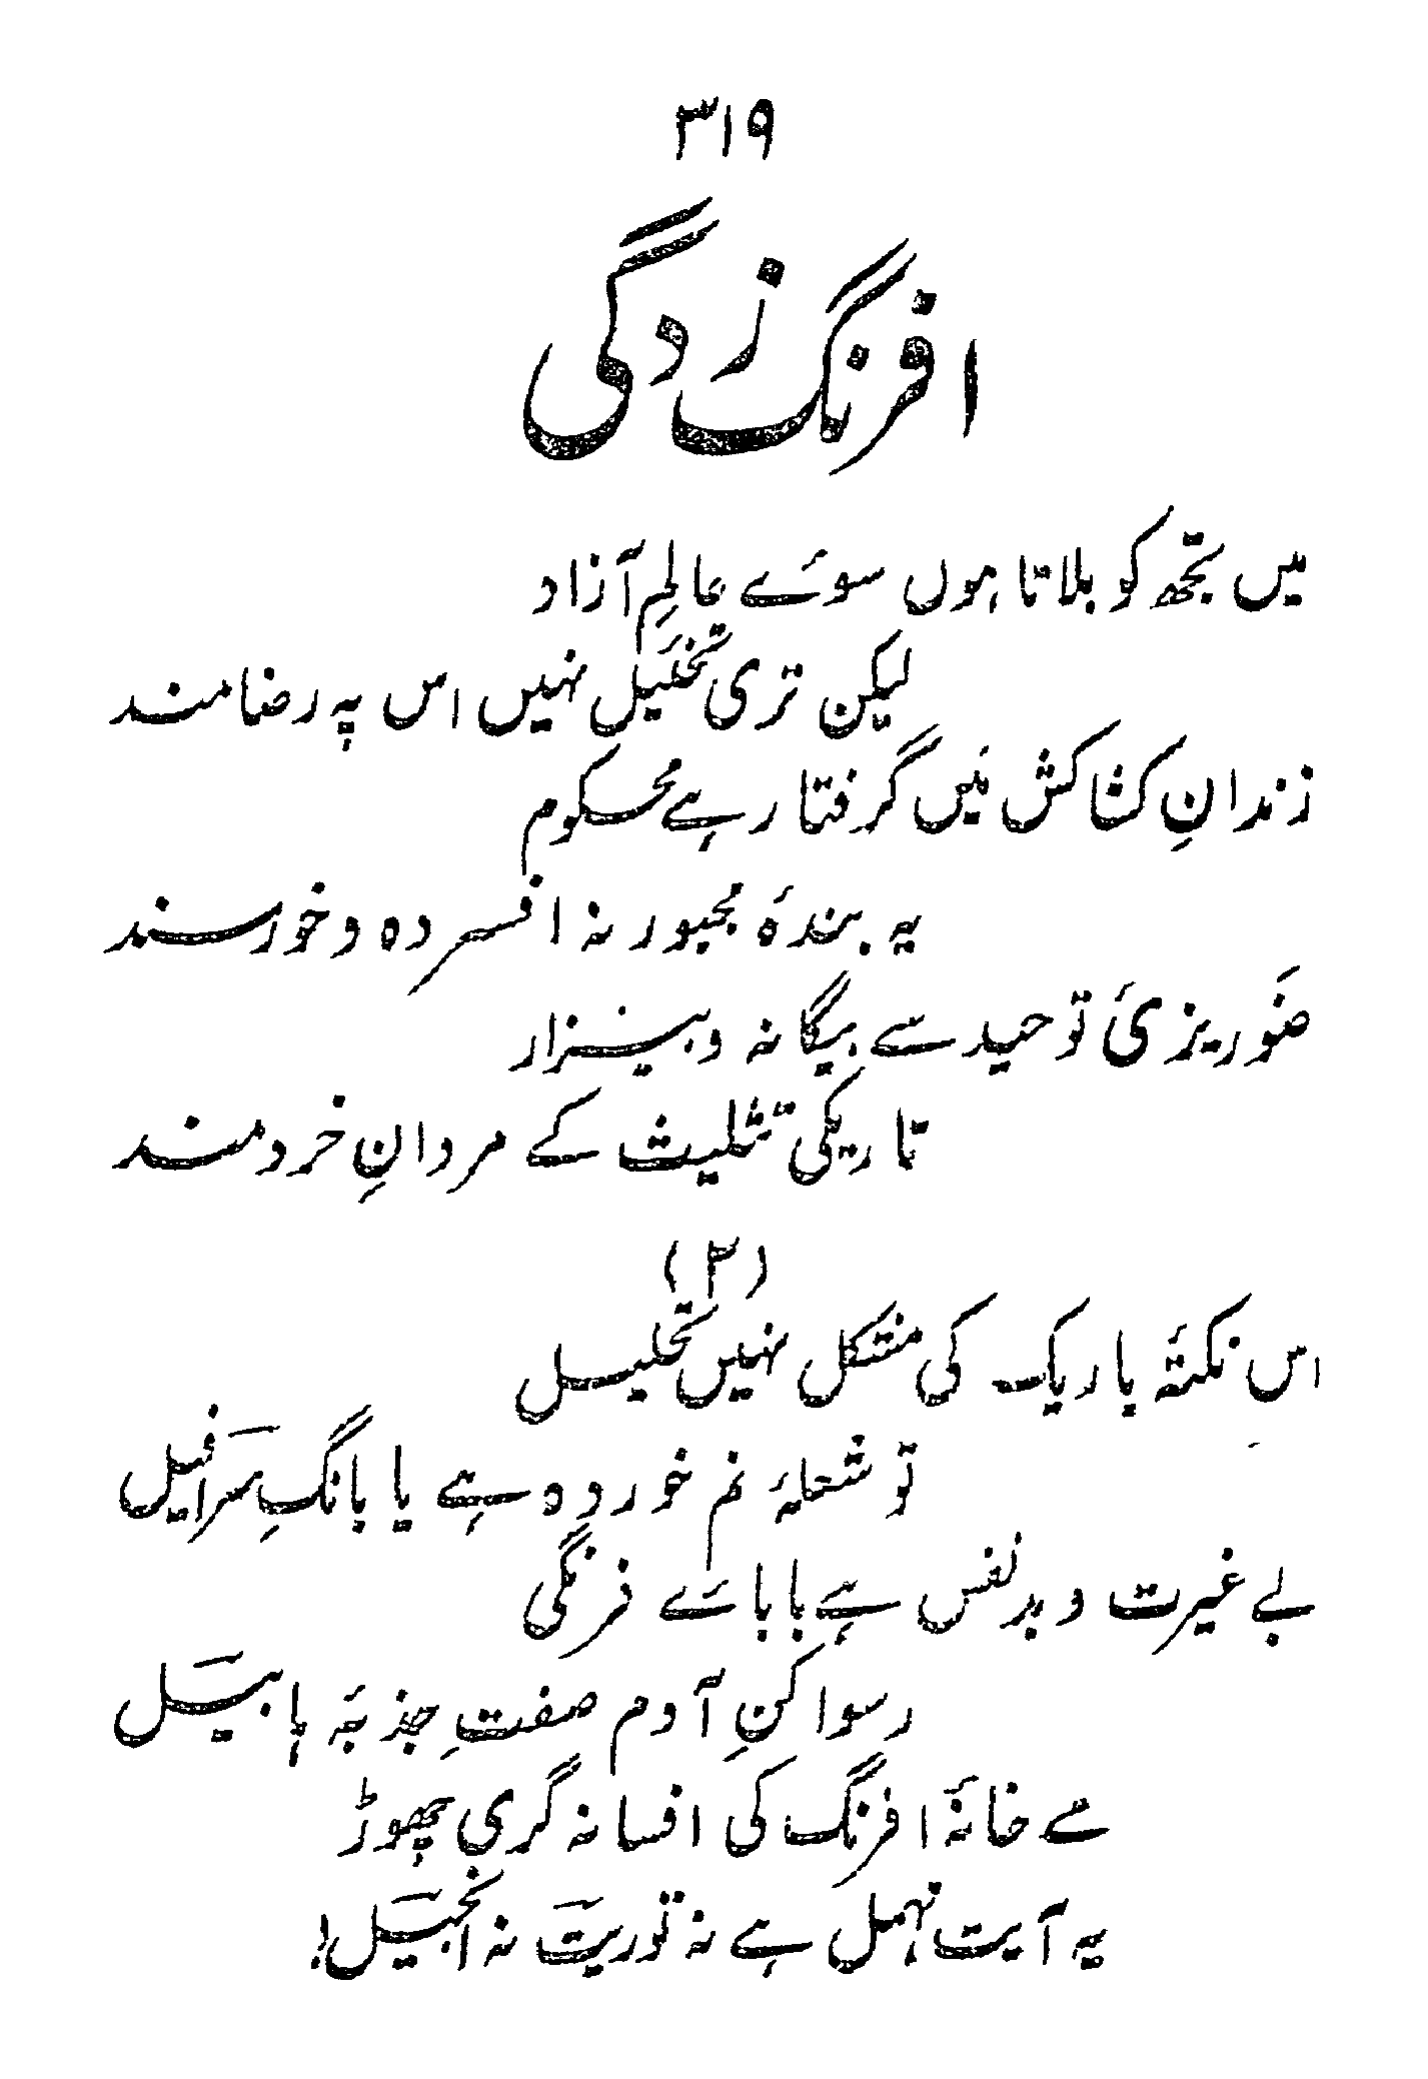 ۳۱۹
افرنگ زدگی
میں تجھ کو بلاتا ہوں سوئے عالمِ آزاد
لیکن تری تخئیل نہیں اس پہ رضامند
زندانِ کشاکش میں گرفتار ہے محکوم
یہ بندۂ مجبور نہ افسردہ و خورسند
ضَو ریزیٔ توحید سے بیگانہ و بیزار
تاریکی تثلیث کے مردانِ خردمند
(۲)
اس نکتۂ باریک کی مشکل نہیں تحلیل
تو شعلۂ نم خوردہ ہے یا بانگِ سَرافیل
بے غیرت و بدنفس ہے بابائے فرنگی
رسوا کنِ آدم صفتِ جذبۂ ہابیل
مے خانۂ افرنگ کی افسانہ گری چھوڑ
یہ آیت مہمل ہے نہ توریت نہ انجیل!